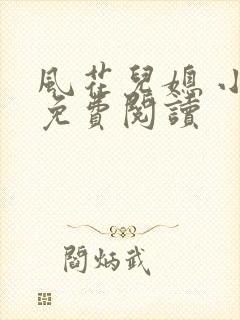 風花兒媳 小
免費閱讀
閻炳武